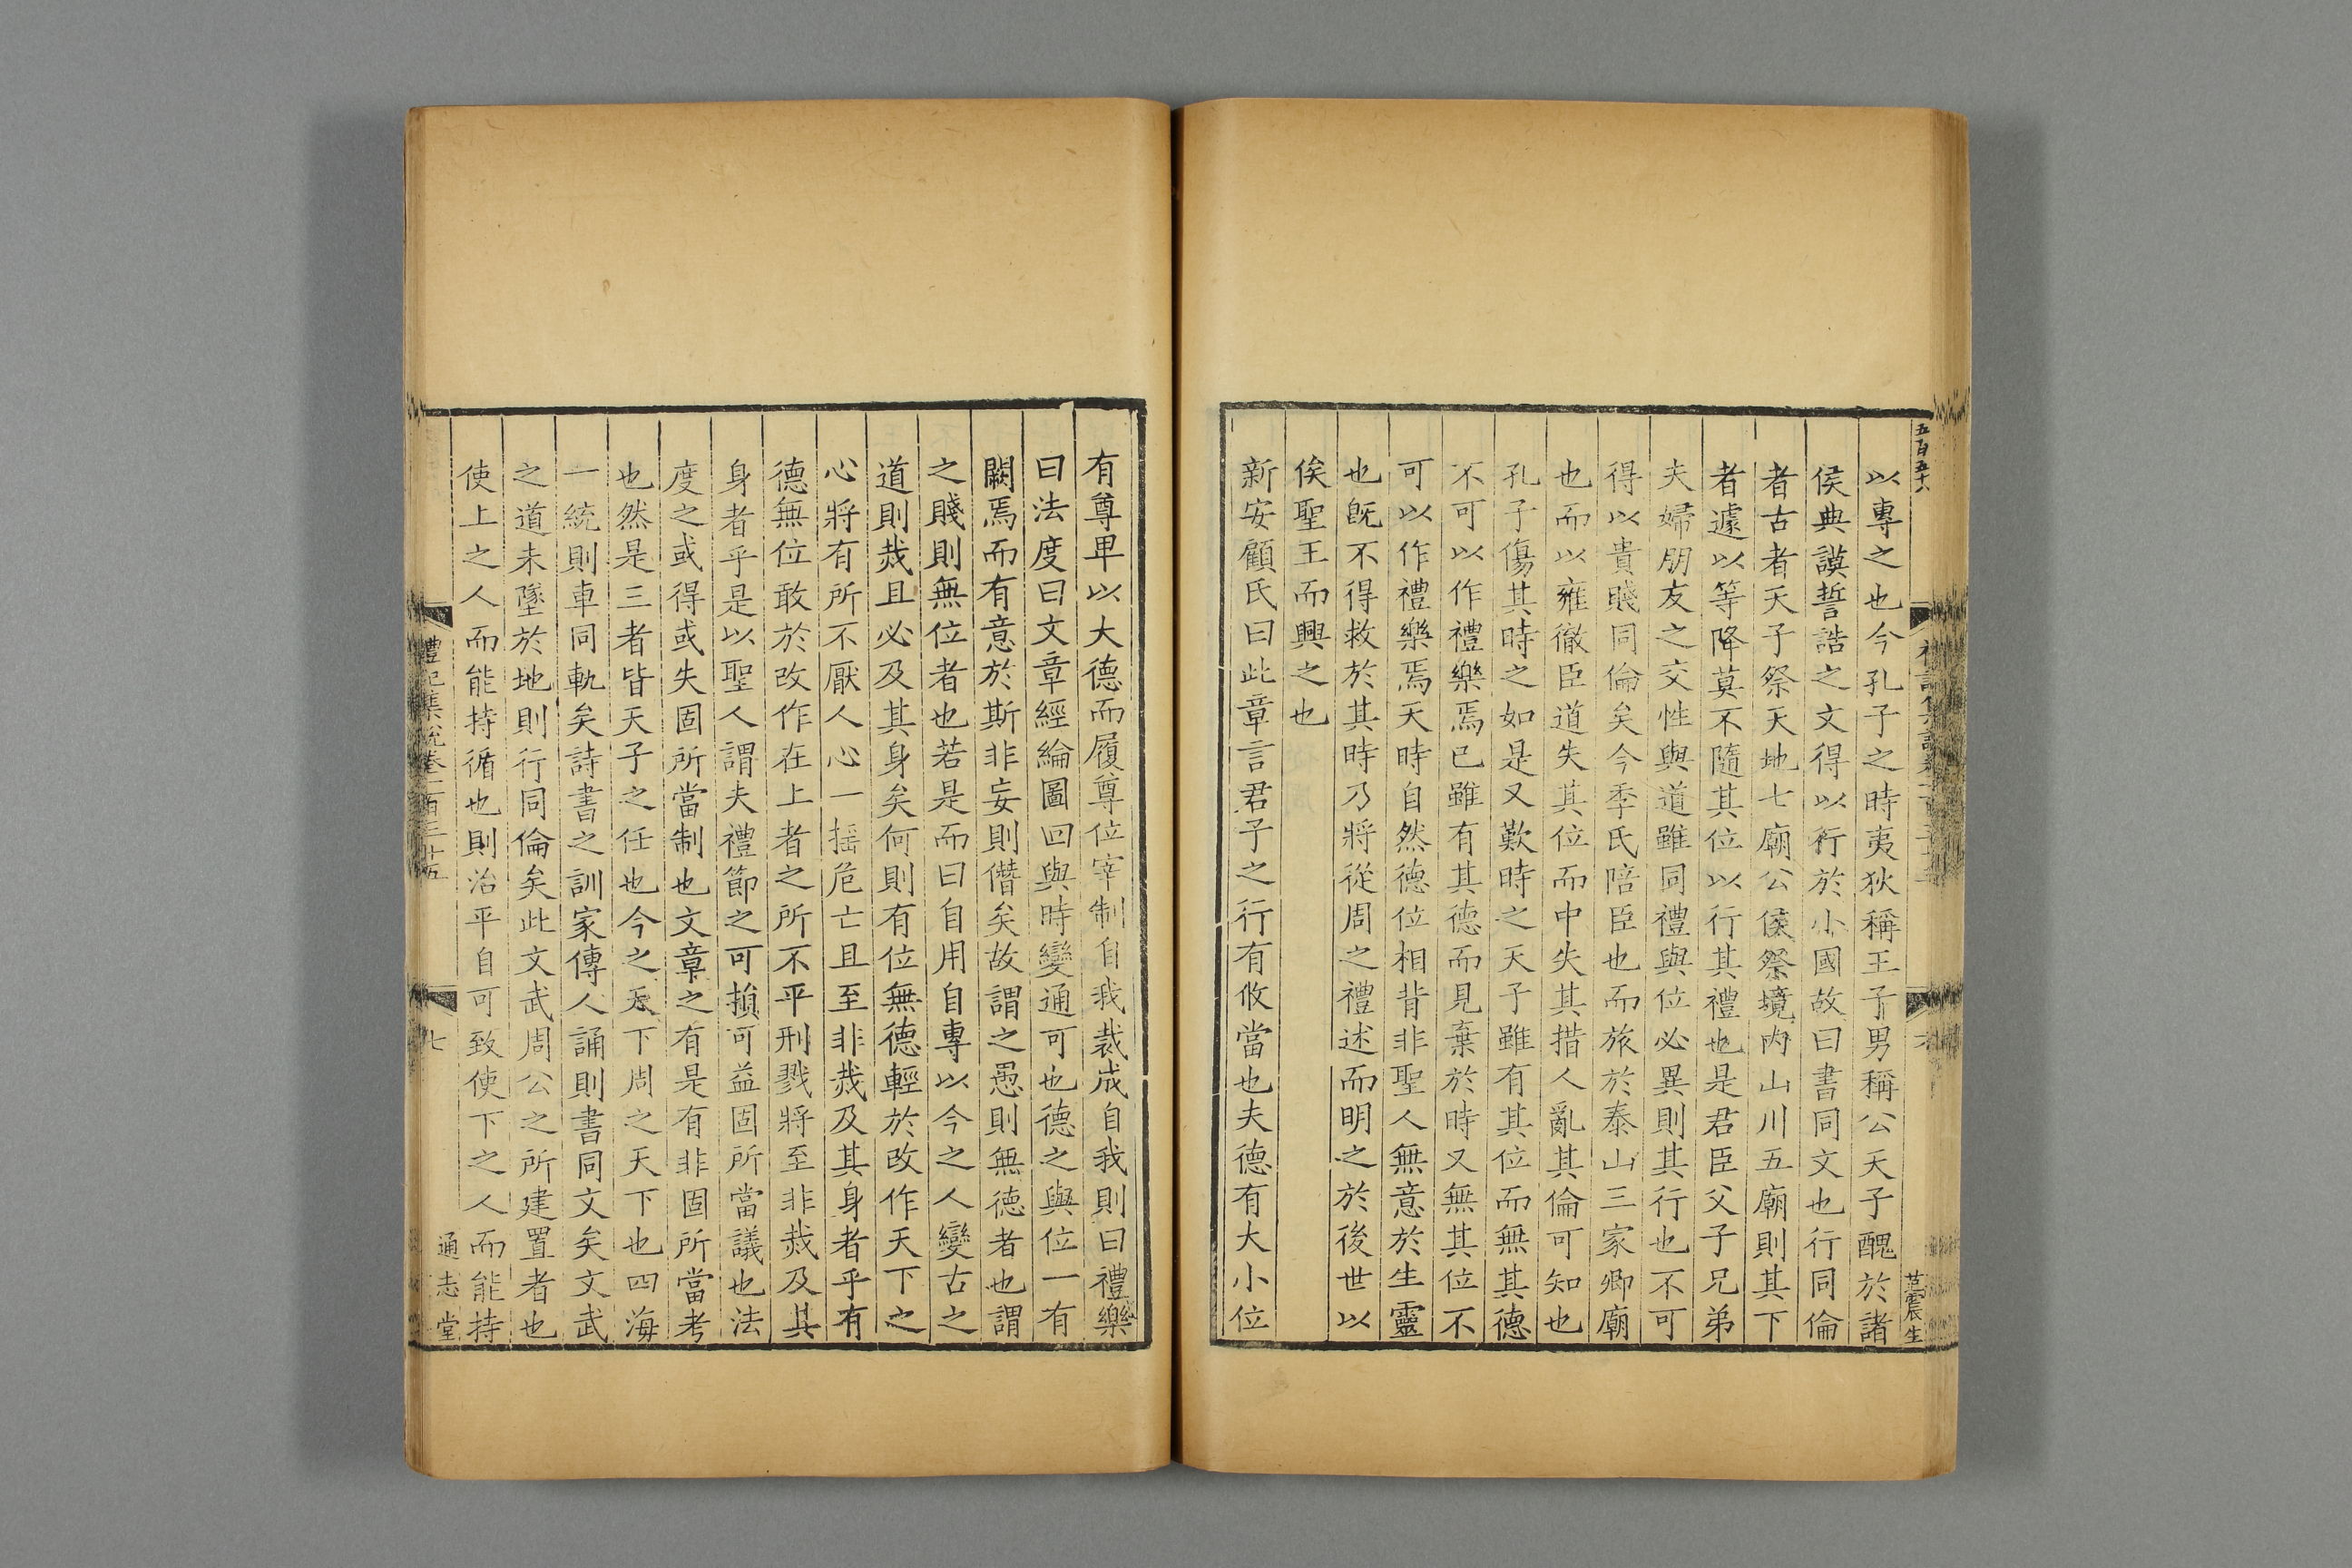 五百五十六
以專之也今孔子之時夷狄稱王子男稱公天子醜於諸
侯典謨誓誥之文得以行於小國故曰書同文也行同倫
者古者天子祭天地七廟公侯祭境内山川五廟則其下
者遽以等降莫不隨其位以行其禮也是君臣父子兄弟
夫婦朋友之交性與道雖同禮與位必異則其行也不可
得以貴賤同倫矣今季氏陪臣也而旅於泰山三家卿廟
也而以雍徹臣道失其位而中失其措人亂其倫可知也
孔子傷其時之如是又歎時之天子雖有其位而無其德
不可以作禮樂焉已雖有其德而見棄於時又無其位不
可以作禮樂焉天時自然德位相背非聖人無意於生靈
也旣不得救於其時乃將從周之禮述而明之於後世以
俟聖王而興之也
新安顧氏曰此章言君子之行有攸當也夫德有大小位
有尊𤰞以大德而履尊位宰制自我裁成自我則曰禮樂
曰法度曰文章經綸圖回與時變通可也德之與位一有
闕焉而有意於斯非妄則僭矣故謂之愚則無德者也謂
之賤則無位者也若是而曰自用自專以今之人變古之
道則烖且必及其身矣何則有位無德輕於改作天下之
心將有所不厭人心一搖危亡且至非烖及其身者乎有
德無位敢於改作在上者之所不平刑戮將至非烖及其
身者乎是以聖人謂夫禮節之可損可益固所當議也法
度之或得或失固所當制也文章之有是有非固所當考
也然是三者皆天子之任也今之天下周之天下也四海
一統則車同軌矣詩書之訓家傳人誦則書同文矣文武
之道未墜於地則行同倫矣此文武周公之所建置者也
使上之人而能持循也則治平自可致使下之人而能持
禮記集說卷一百三十五
七
通志堂